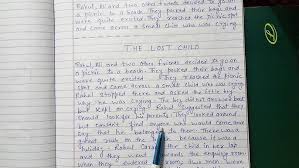 Rahul, Ali and two other friends decided to go on
a picnic to a beach. They packed their bags and
were quite excited. They reached the picnic spot
and came across a small child who was crying.
THE LOST CHILD
Rahul, Ali and two other friends decided to go on
a picnic to a beach. They packed their bags and
were quite excited. They reached at picnic
spot and came across a small child who was crying.
Rahul stopped there and asked the little boy
why he was crying. The boy did not answer but
but kept on crying. Rahul suggested that they
should look for his parents. They looked around
but couldn't find anyone who would come and
say that he belongs to them. There was a
great rush in the because it was a
holiday. Rahul the child in his lap
and they went towards the enquiry room
when they entered the room